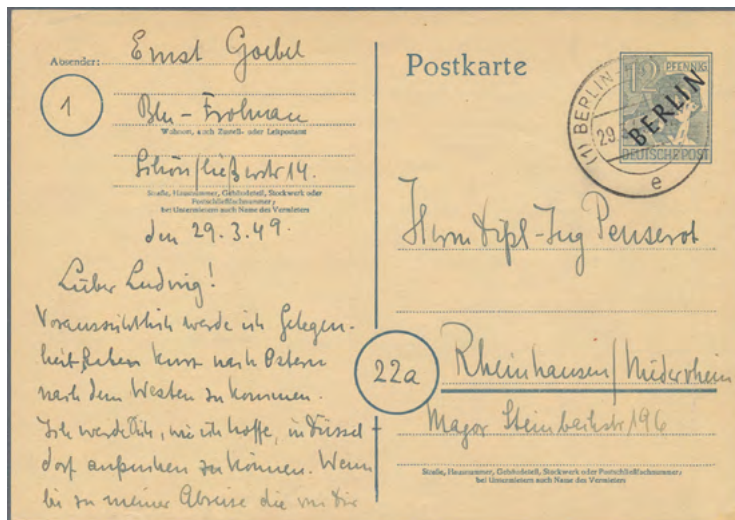 Absender: Ernst Goebel
1
Bln-Frohnau
Wohnort, auch Zustell- oder Leitpostamt
14.
Straße, Hausnummer, Gebäudeteil, Stockwerk oder
Postschließfachnummer;
bei Untermietern auch Name des Vermieters
den 29.3.49.
Lieber Ludwig!
Voraussichtlich werde ich Gelegen-
heit haben kurz nach Ostern
nach dem Westen zu kommen.
Ich werde Dich, wie ich hoffe, in Düssel
dorf aufsuchen zu können. Wenn
bis zu meiner Abreise die von Dir
Postkarte
12 PFENNIG
BERLIN
DEUTSCHE POST
(1) BERLIN
29
e
Herrn Dipl-Ing Penserot
22a
Rheinhausen/Niederrhein
Major Steinbachstr 196
Straße, Hausnummer, Gebäudeteil, Stockwerk oder Postschließfachnummer;
bei Untermietern auch Name des Vermieters